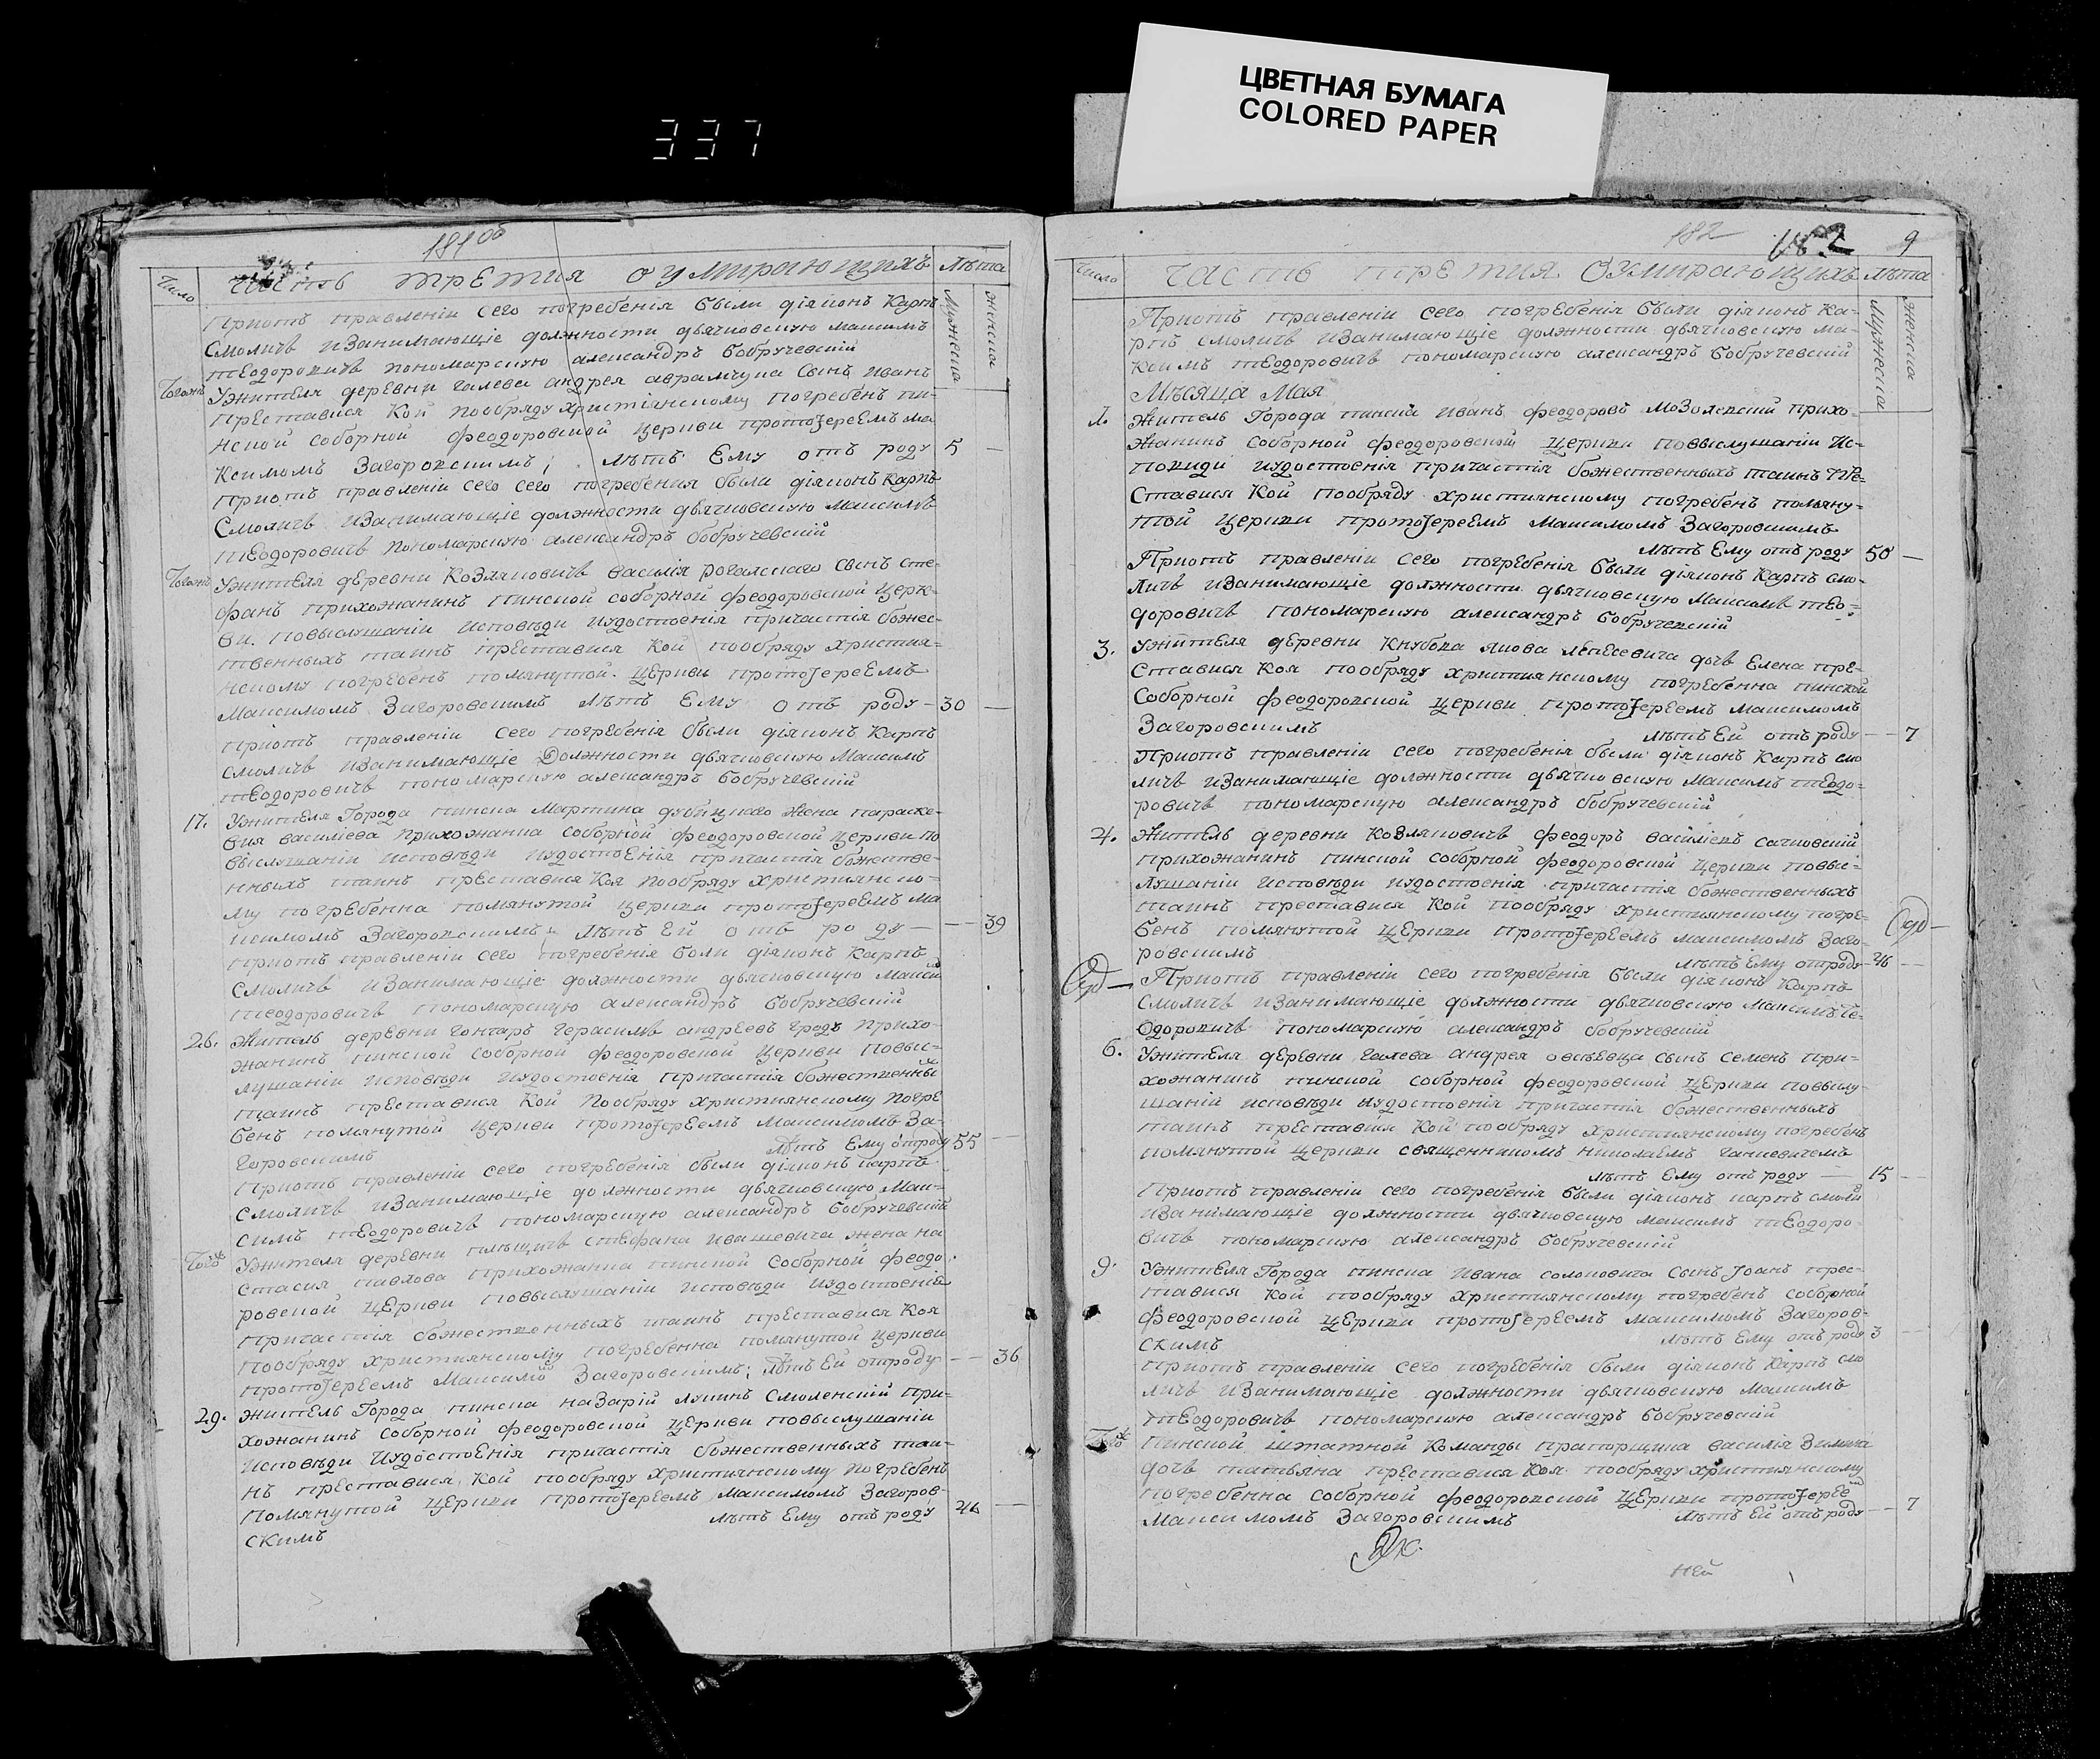 ЦВЕТНАЯ БУМАГА
COLORED PAPER
337
181 об
Число
Часть третия оумирающихъ
Лѣта
Мужеска
Женска
Приотъ правленіи сего погребенія были діяконъ Карпъ
Смоличъ изанимающіе должности дьячковскую Максимъ
теодоровичъ пономарскую александръ бобручевскій
Тогожъ
Ужителя деревни галева андрея аврамчука Сынъ Иванъ
преставися Кой пообряду христіянскому погребенъ пи-
нской соборной феодоровской церкви протоіереемъ ма
ксимомъ Загоровскимъ; лѣтъ Ему отъ роду 5 —
приотъ правленіи сего сего погребения были діяконъ Карпъ
Смоличъ изанимающіе должности дьячковскую Максимъ
теодоровичъ пономарскую александръ бобручевскій
Тогожъ
Ужителя деревни Козляковичъ василія рогалскаго сынъ сте-
фанъ прихожанинъ пинской соборной феодоровской церк-
ви. повыслушаніи исповѣди иудостоенія причастія божес-
твенныхъ таинъ преставися Кой пообряду христия-
нскому погребенъ помянутой церкви протоіереемъ
Максимомъ Загоровскимъ лѣтъ Ему отъ роду — 30 —
приотъ правленіи сего погребенія были діяконъ Карпъ
смоличъ изанимающіе Должности дьячковскую Максимъ
теодоровичъ пономарскую александръ бобручевскій
17. Ужителя Города пинска Мартина дубицкаго Жена параске-
вия василіева прихожанка соборной феодоровской церкви по
выслушаніи исповѣди иудостоенія причастія божестве-
нныхъ таинъ преставися Коя пообряду християнско-
му погребенна помянутой церкви протоіереемъ ма
ксимомъ Загоровскимъ лѣтъ Ей отъ роду — — 39
приотъ правленіи сего погребенія были діяконъ Карпъ
смоличъ изанимающіе должности дьячковскую Максим
теодоровичъ пономарскую александръ бобручевскій
26. Житель деревни гончаръ герасимъ андреевъ градъ прихо-
жанинъ пинской соборной феодоровской церкви повыс-
лушаніи исповѣди иудостоенія причастія божественны
таинъ преставися Кой пообряду християнскому погре
бенъ помянутой церкви протоіереемъ Максимомъ За-
горовскимъ лѣтъ Ему отроду 55 —
приотъ правленіи сего погребенія были діяконъ карпъ
смоличъ изанимающіе должности дьячковскую Мак-
симъ теодоровичъ пономарскую александръ бобручевскій
Того
Ужителя деревни плещичъ стефана ивашевича жена на
стасия павлова прихожанка пинской Соборной феодо-
ровской церкви повыслушаніи исповѣди иудостоенія
причастія божественныхъ таинъ преставися Коя
пообряду християнскому погребенна помянутой церкви
протоіереемъ Максимо Загоровскимъ; лѣтъ Ей отроду — — 36
29. житель Города пинска назарій лукинъ Смоленскій при-
хожанинъ Соборной феодоровской церкви повыслушаніи
исповѣди иудостоенія причастія божественныхъ таи-
нъ преставися, Кой пообряду християнскому погребенъ
помянутой церкви протоіереемъ Максимомъ Загоров-
скимъ лѣтъ Ему отъ роду —
182
182
9
Число
Часть третия Оумирающихъ
лѣта
Мужеска
Женска
Приотъ правленіи сего погребенія были діяконъ Ка-
рпъ смоличъ изанимающіе должности дьячковскую ма-
ксимъ теодоровичъ пономарскую александръ бобручевскій
Мѣсяца Мая
1. Житель Города пинска иванъ феодоровъ мозолевскій прихо-
жанинъ соборной феодоровской церкви повыслушаніи ис-
повиди иудостоенія причастія божественныхъ таинъ пре-
ставися Кой пообряду християнскому погребенъ помяну-
той церкви протоіереемъ Максимомъ Загоровскимъ
лѣтъ Ему отъ роду 50 —
Приотъ правленіи сего погребенія были діяконъ Карпъ смо-
личъ изанимающіе должности дьячковскую Максимъ тео-
доровичъ пономарскую александръ бобручевскій
3. Ужителя деревни Кнубова якова лепесевича дочь Елена пре-
ставися Коя пообряду християнскому погребенна пинской
Соборной феодоровской церкви протоіереемъ максимомъ
Загоровскимъ лѣтъ Ей отъ роду — — 7
Приотъ правленіи сего погребенія были діяконъ Карпъ смо
личъ изанимающіе должности дьячковскую Максимъ теодо-
ровичъ пономарскую александръ бобручевскій
4. Житель деревни Козляковичъ феодоръ василіевъ сачковскій
прихожанинъ пинской соборной феодоровской церкви повыс-
лушаніи исповѣди иудостоенія причастія божественныхъ
таинъ преставися Кой пообряду християнскому погре-
бенъ помянутой церкви протоіереемъ максимомъ Заго-
ровскимъ лѣтъ Ему отроду —
Приотъ правленіи сего погребенія были діяконъ Карпъ
смоличъ изанимающіе должности дьячковскую Максимъ те-
одоровичъ пономарскую александръ бобручевскій
6. Ужителя деревни галева андрея овсѣевца сынъ семенъ при-
хожанинъ пинской соборной феодоровской церкви повыслу-
шаніи исповѣди иудостоенія причастія божественныхъ
таинъ преставися Кой пообряду християнскому погребенъ
помянутой церкви священникомъ николаемъ
лѣтъ Ему отъ роду — 15 —
Приотъ правленіи сего погребенія были діяконъ карпъ смоли
изанимающіе должности дьячковскую максимъ теодоро-
вичъ пономарскую александръ бобручевскій
9. Ужителя Города пинска ивана солоповича Сынъ Іоанъ прес-
тавися Кой пообряду християнскому погребенъ соборной
феодоровской церкви протоіереемъ максимомъ Загоров-
скимъ лѣтъ Ему отъ роду 3 —
приотъ правленіи сего погребенія были діяконъ Карпъ смо
личъ изанимающіе должности дьячковскую Максимъ
теодоровичъ пономарскую александръ бобручевскій
Того
Пинской штатной Команды прапорщика василія Зимина
дочь татьяна преставися Коя пообряду християнскому
погребенна соборной феодоровской церкви протоіерее
Максимомъ Загоровскимъ лѣтъ Ей отъ роду — — 7